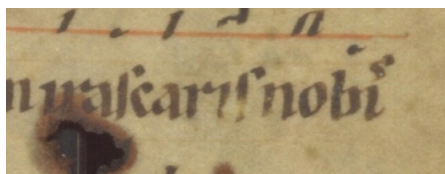 iraſcariſ nobis